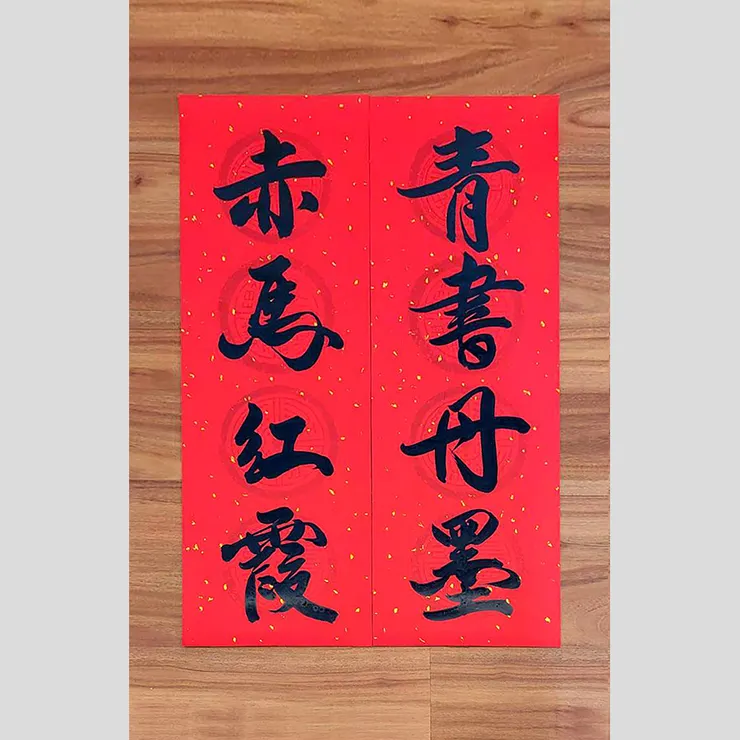 青書丹墨
赤馬紅霞